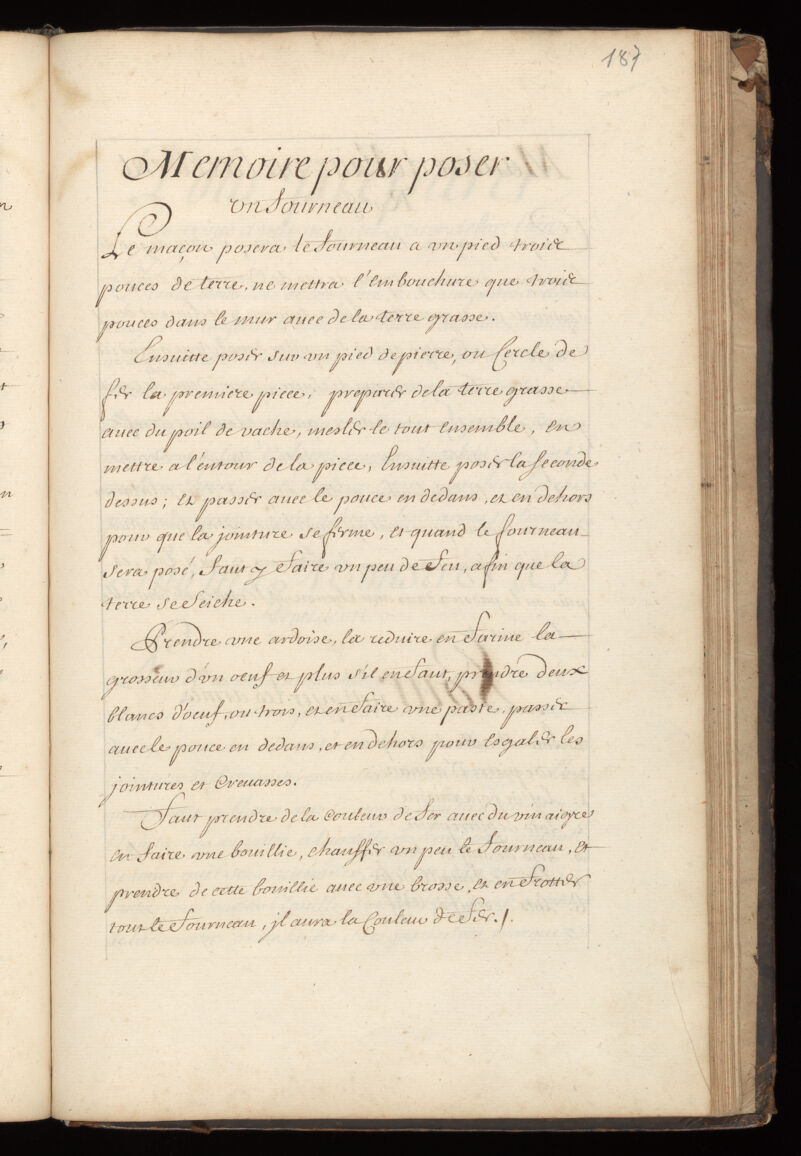 187
Memoire pour poser
vn fourneau
Le maçon posera le fourneau a vn pied trois
pouces de terre, ne mettra l'embouchure que trois
pouces dans le mur auec de la terre grasse.
Ensuitte poser sur vn pied de pierre, ou Cercle de
fer la premiere piece, preparer de la terre grasse
auec du poil de vache, mesler le tout ensemble, en
mettre a l'entour de la piece, Ensuitte poser la seconde
dessus; et passer auec le pouce en dedans, et en dehors
pour que la jointure se ferme, et quand le fourneau
sera posé, faut y faire vn peu de feu, afin que la
terre se seiche.
Prendre vne ardoise, la reduire en farine la
grosseur d'vn oeuf et plus s'il en faut, prendre deux
blancs d'oeuf, ou trois, et en faire vne paste, passer
auec le pouce en dedans, et en dehors pour esgaler les
jointures et Creuasses.
Faut prendre de la Couleur de fer auec du vinaigre
en faire vne bouillie, chauffer vn peu le fourneau, et
prendre de cette bouillie auec vne brosse, et en frotter
tout le fourneau, jl aura la Couleur de fer./.